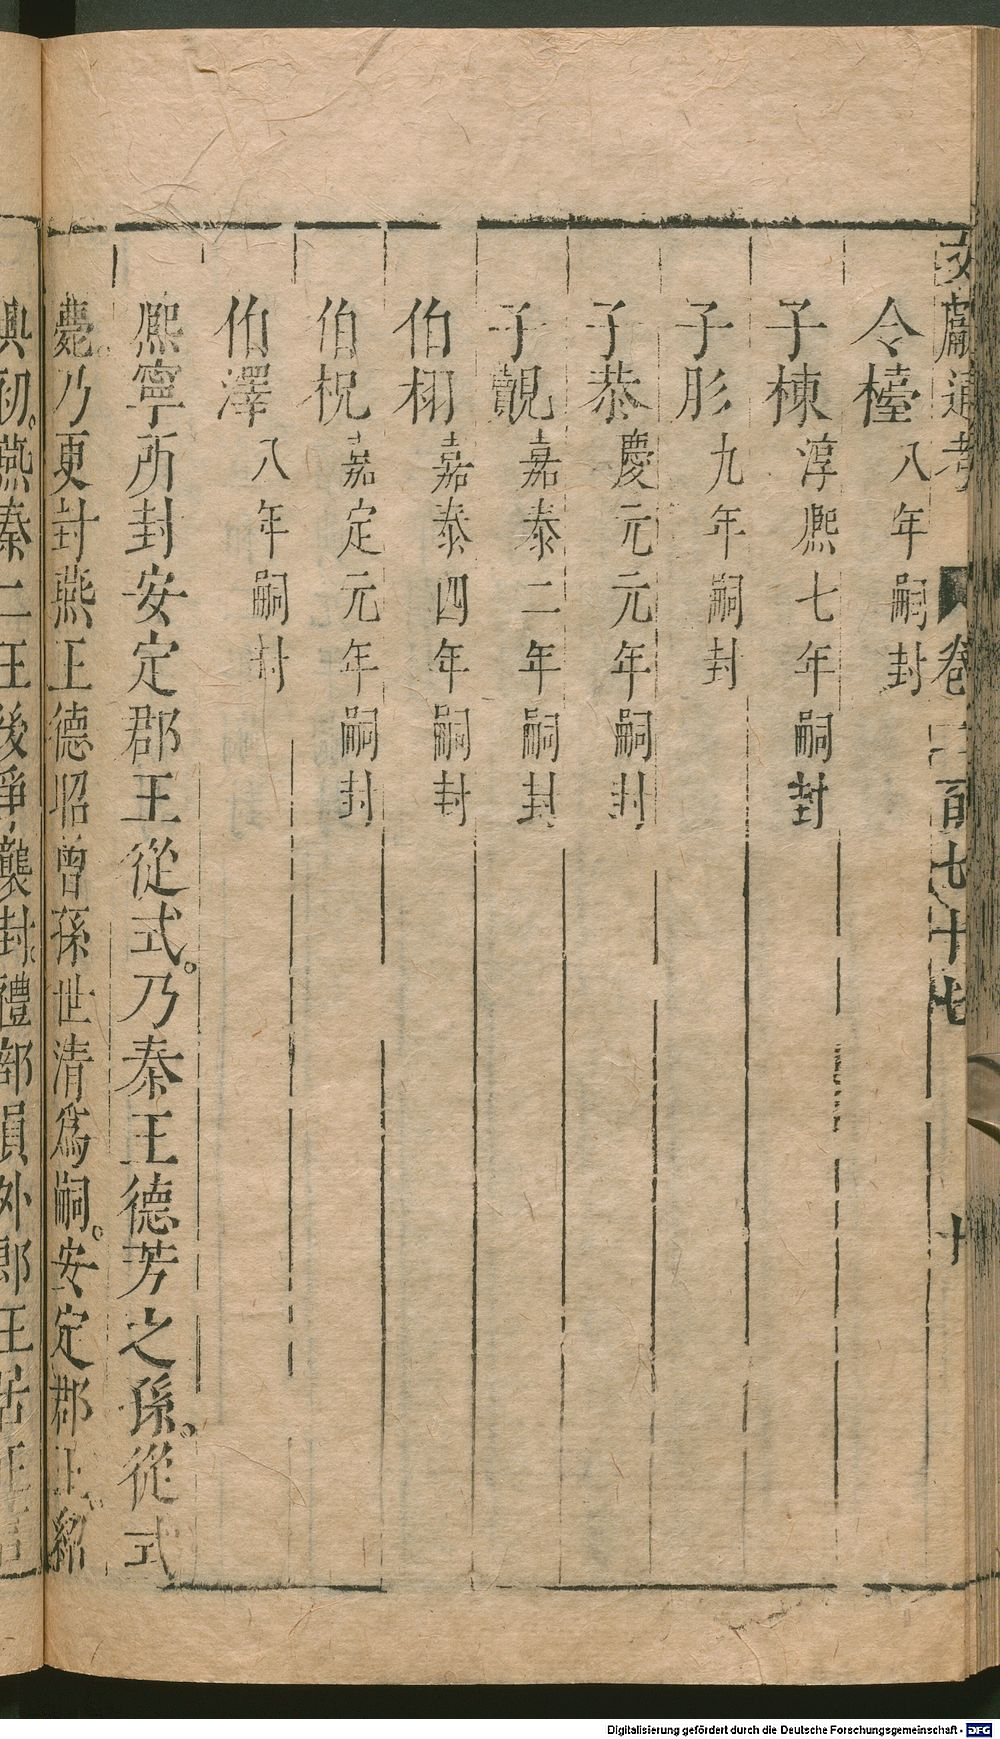 文獻通考 卷二百七十七 十
令櫶 八年嗣封
子棟 淳熙七年嗣封
子肜 九年嗣封
子恭 慶元元年嗣封
子覿 嘉泰二年嗣封
伯栩 嘉泰四年嗣封
伯柷 嘉定元年嗣封
伯澤 八年嗣封
熙寧所封安定郡王從式。乃秦王德芳之孫。從式
薨。乃更封燕王德昭曾孫世清爲嗣。安定郡王。紹
興初。燕秦二王後爭襲封。禮部員外郎王居正言
Digitalisierung gefördert durch die Deutsche Forschungsgemeinschaft - DFG